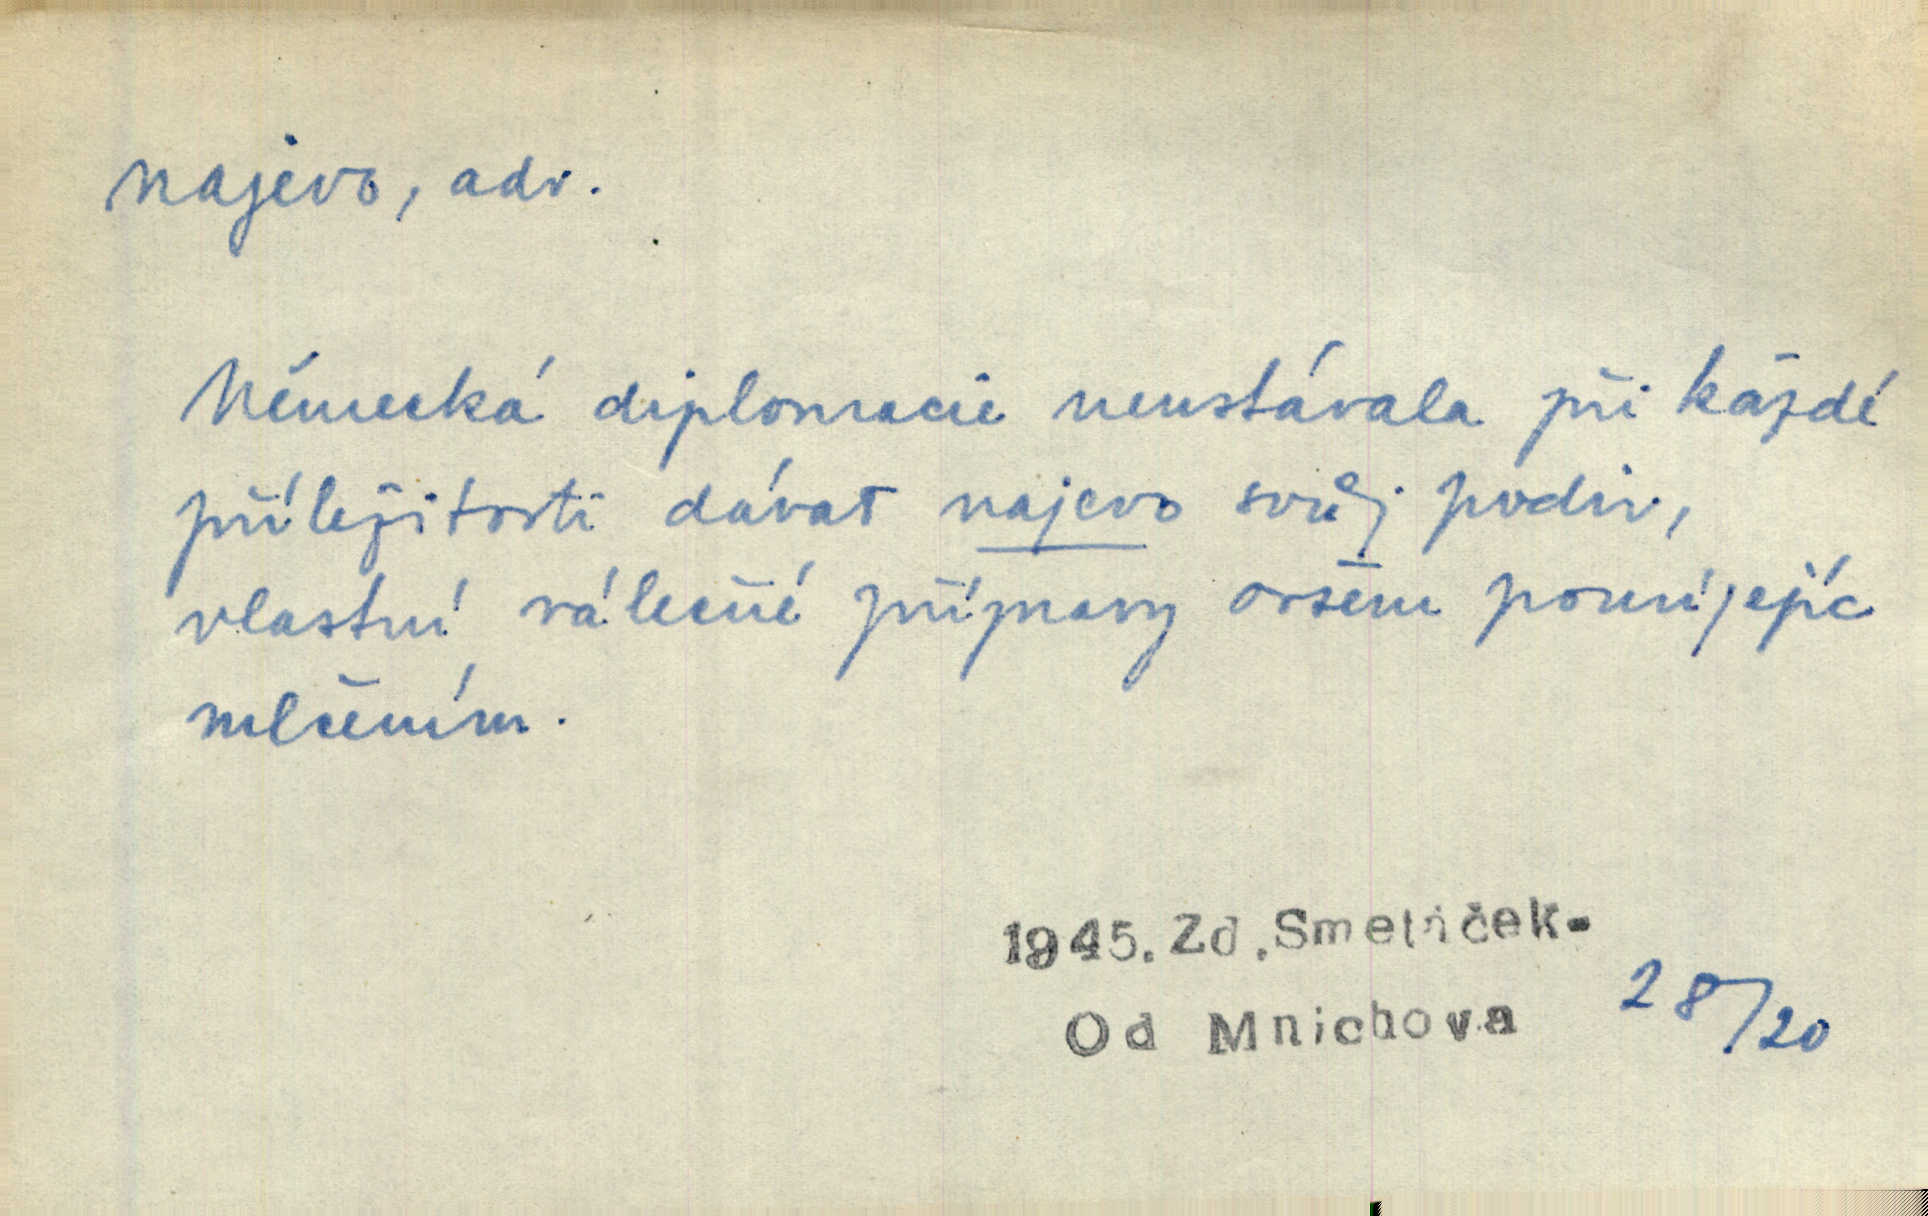 najevo, adv.
Německá diplomacie neustávala při každé
příležitosti dávat najevo svůj podiv,
vlastní válečné přípravy ovšem pomíjejíc
mlčením.
1945. Zd. Smetáček-
Od Mnichova
28/20